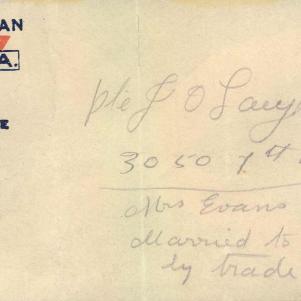 AN
A.
E
pte J O Laugh
3050 7th
Mrs Evans
Married to
by trade